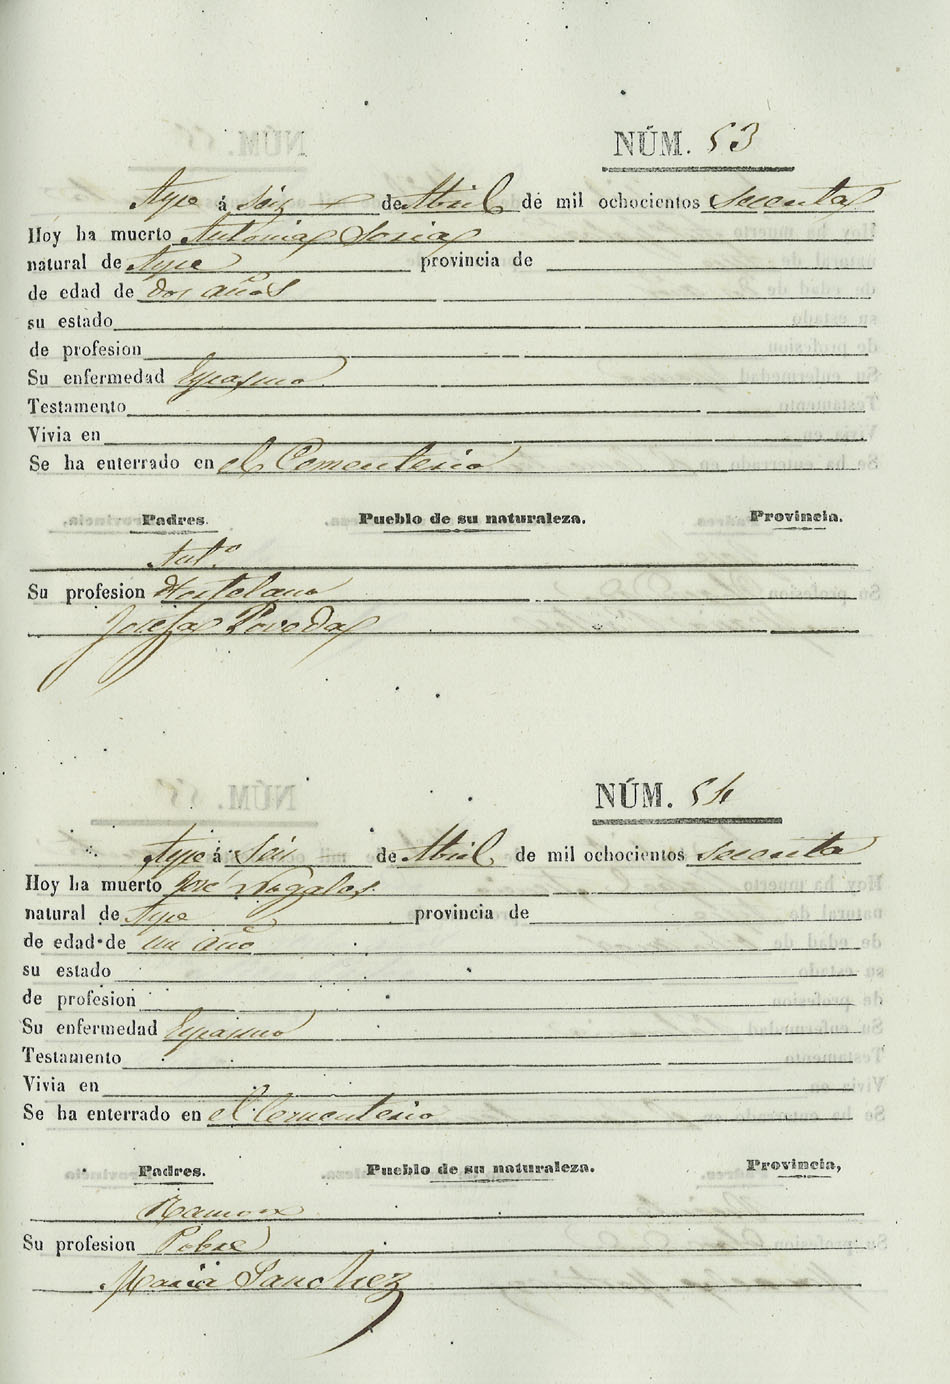 NÚM. 53
Aspe á Seis de Abril de mil ochocientos secenta
Hoy ha muerto Antonia Soria
natural de Aspe provincia de
de edad de dos años
su estado
de profesion
Su enfermedad Espasmo
Testamento
Vivia en
Se ha enterrado en el Cementerio
Padres. Pueblo de su naturaleza. Provincia.
Ant.º
Su profesion Hortelano
Josefa Poveda
NÚM. 54
Aspe á Seis de Abril de mil ochocientos secenta
Hoy ha muerto José Nogales
natural de Aspe provincia de
de edad de un año
su estado
de profesion
Su enfermedad Espasmo
Testamento
Vivia en
Se ha enterrado en el Cementerio
Padres. Pueblo de su naturaleza. Provincia,
Ramon
Su profesion Pobre
Maria Sanchez